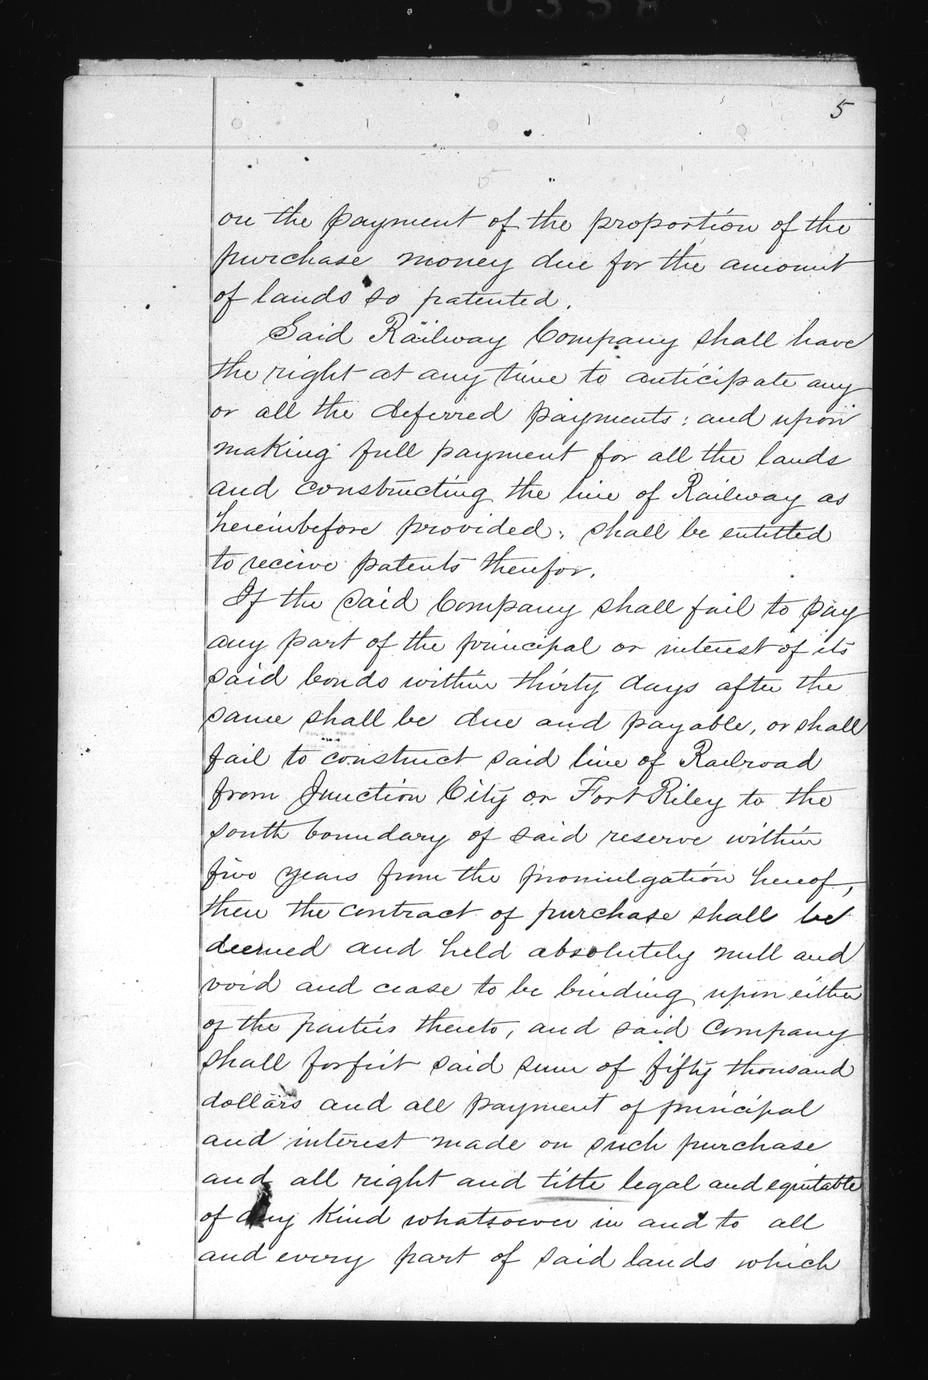 0358
5
on the payment of the proportion of the
purchase money due for the amount
of lands so patented.
Said Railway Company shall have
the right at any time to anticipate any
or all the deferred payments; and upon
making full payment for all the lands
and constructing the line of Railway as
hereinbefore provided; shall be entitled
to receive patents therefor.
If the said Company shall fail to pay
any part of the principal or interest of its
said bonds within thirty days after the
same shall be due and payable, or shall
fail to construct said line of Railroad
from Junction City or Fort Riley to the
south boundary of said reserve within
five years from the promulgation hereof,
then the contract of purchase shall be
deemed and held absolutely null and
void and cease to be binding upon either
of the parties thereto, and said Company
shall forfeit said sum of fifty thousand
dollars and all payment of principal
and interest made on such purchase
and all right and title legal and equitable
of any kind whatsoever in and to all
and every part of said lands which